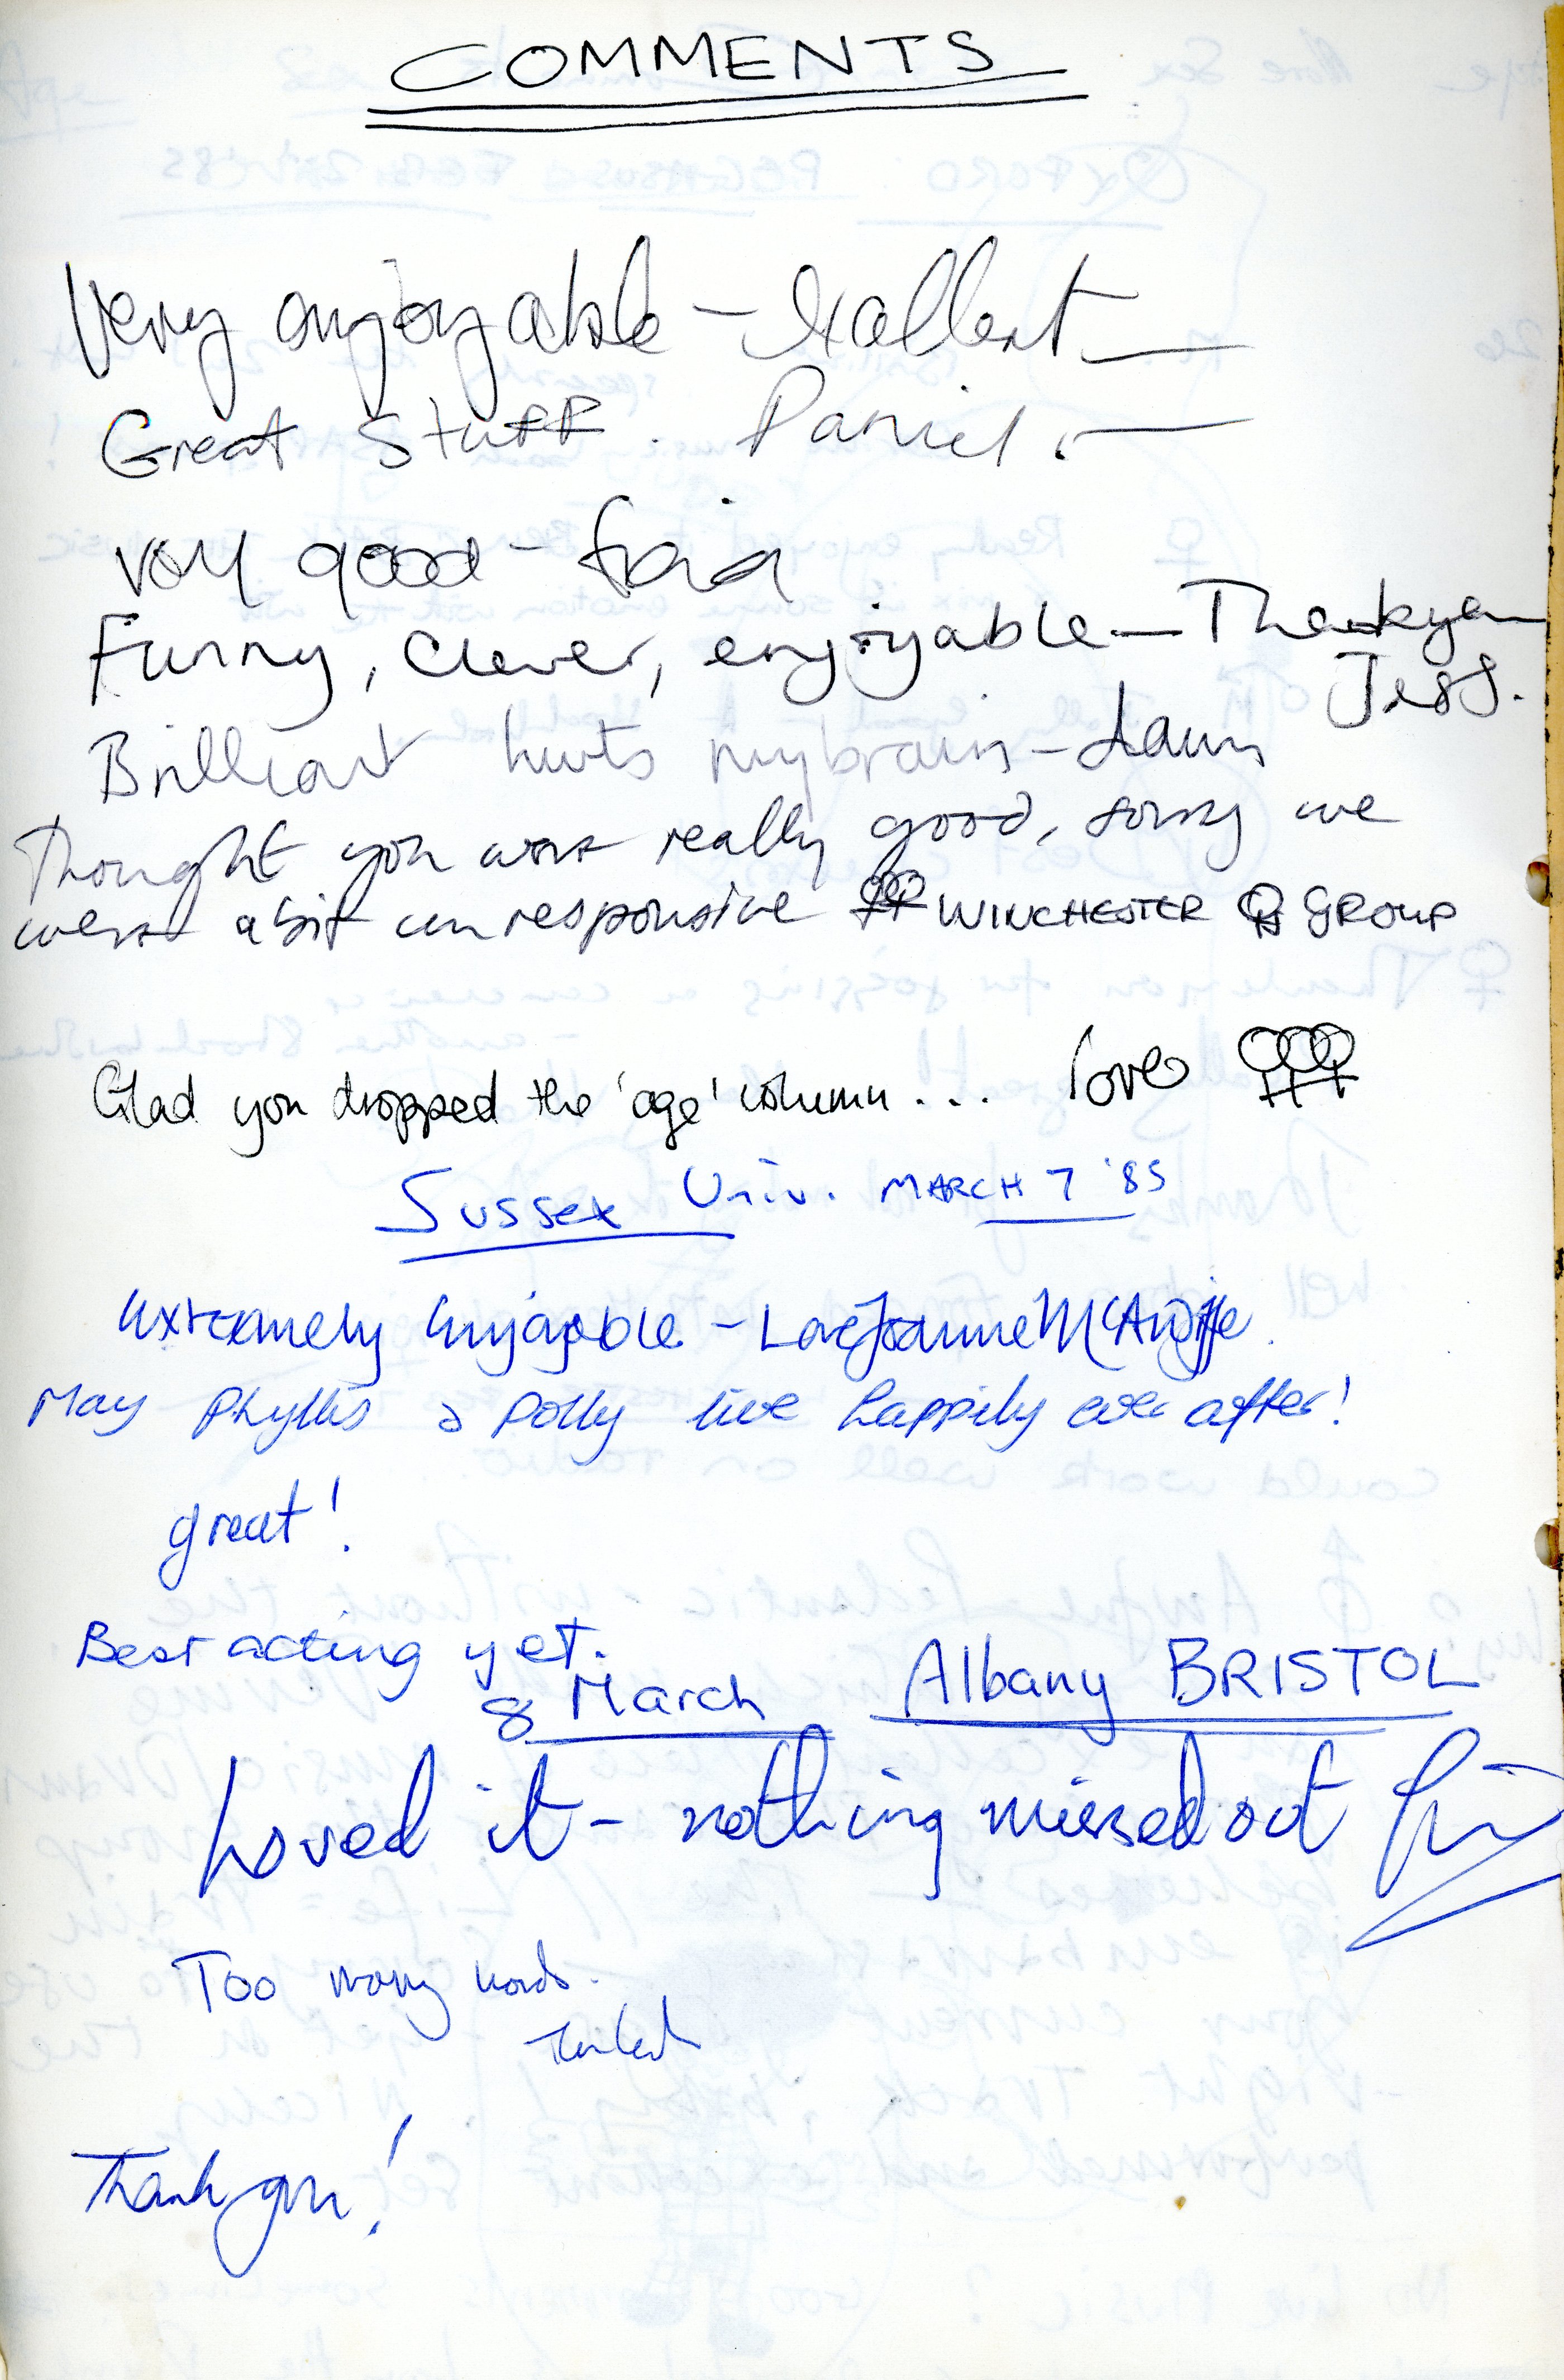 COMMENTS
Very enjoyable - Excellent
Great Stuff. Daniel.
very good -
Funny, Clever, enjoyable - Thankyou
Jess.
Brilliant hurts my brain - Dawn
Thought you were really good, sorry we
were a bit unresponsive WINCHESTER GROUP
Glad you dropped the 'age' column... love
Sussex Univ. MARCH 7 '85
Extremely Enjoyable - Love Joanne
May Phyllis & Polly live happily ever after!
great!
Best acting yet.
8 March Albany BRISTOL
Loved it - nothing missed out
Too many words.
Thank you!